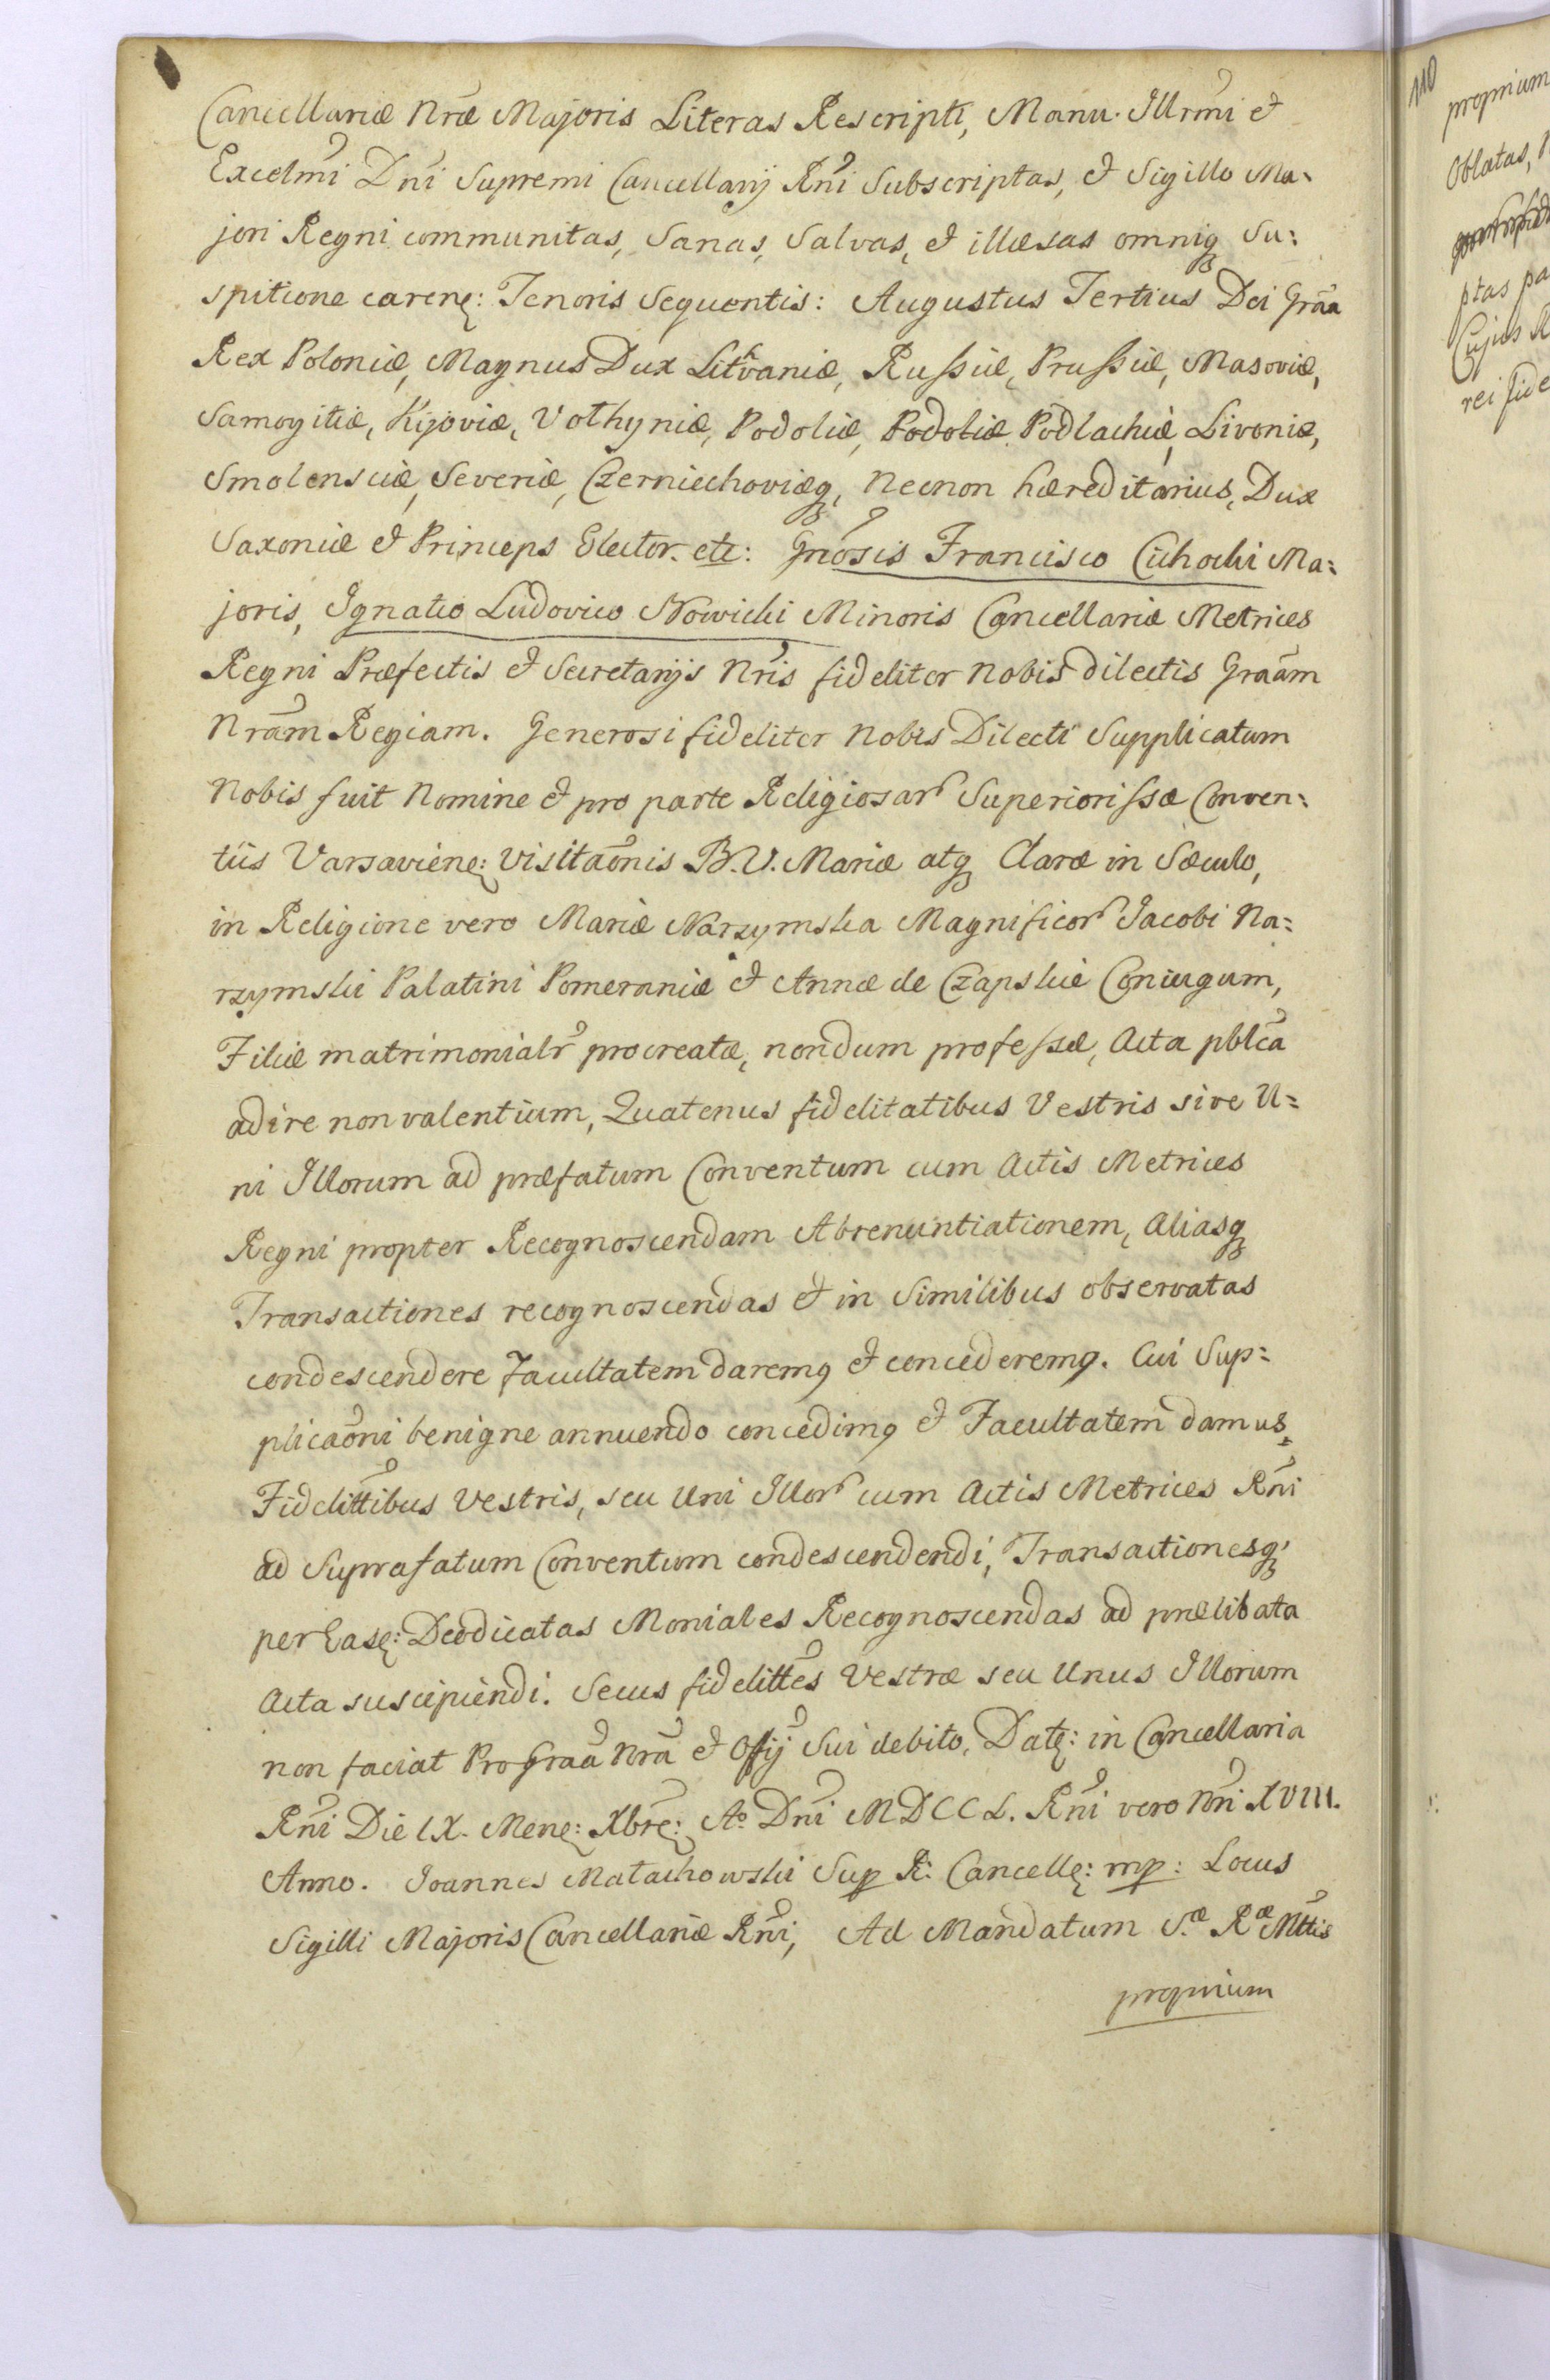 Cancellariæ Nræ Majoris Literas Rescripti, Manu. Illrmi et
Excelmi Dni Supremi Cancellarij Rni Subscriptas, et Sigillo Ma-
jori Regni communitas, Sanas, Salvas, et illæsas omniq Su:
spitione carenę: Tenoris Sequentis: Augustus Tertius Dei Graa
Rex Poloniæ, Magnus Dux Lithvaniæ, Russiæ, Prussiæ, Masoviæ,
Samogitiæ, Kijoviæ, Volhyniæ, Podoliæ, Podoliæ Podlachiæ, Livoniæ,
Smolensciæ, Severiæ, Czerniechoviæq, Necnon hæreditarius, Dux
Saxoniæ et Princeps Elector. etc: Gnosis Francisco Cichocki Ma:
joris, Ignatio Ludovico Nowicki Minoris Cancellariæ Metrices
Regni Præfectis et Secretarijs Nris fideliter Nobis dilectis Graam
Nram Regiam. Generosi fideliter Nobis Dilecti Supplicatum
Nobis fuit Nomine et pro parte Religiosar Superiorissæ Conven:
tûs Varsavienę: Visitaonis B.V. Mariæ atq Claræ in Sæculo,
in Religione vero Mariæ Narzymska Magnificor Jacobi Na:
rzymski Palatini Pomeraniæ et Annæ de Czapskie Coniugum,
Filiæ matrimonialr procreatæ, nondum professæ, Acta pblca
adire non valentium, Quatenus fidelitatibus Vestris sive U=
ni Illorum ad præfatum Conventum cum Actis Metrices
Regni propter Recognoscendam Abrenuntiationem, Aliasq
Transactiones recognoscendas et in Similibus observatas
condescendere Facultatem daremq et concederemq. Cui Sup=
plicaoni benigne annuendo concedimq et Facultatem damus,
Fidelittibus Vestris, seu Uni Illor cum Actis Metrices Rni
ad Suprafatum Conventum condescendendi, Transactionesq
per Easę: Deodicatas Moniales Recognoscendas ad prælibata
Acta suscipiendi. Secus fidelittes Vestræ seu Unus Illorum
non faciat Pro Graa Nra et Offij Sui debito. Datę: in Cancellaria
Rni Die IX. Menę: Xbrę: Ao Dni MDCCL. Rni vero Nri XVIII.
Anno. Joannes Małachowski Sup R: Cancellę: mp: Locus
Sigilli Majoris Cancellariæ Rni, Ad Mandatum S.æ Ræ Mttis
proprium
110
proprium
Oblatas,
ptas pa
Cujus
rei fide